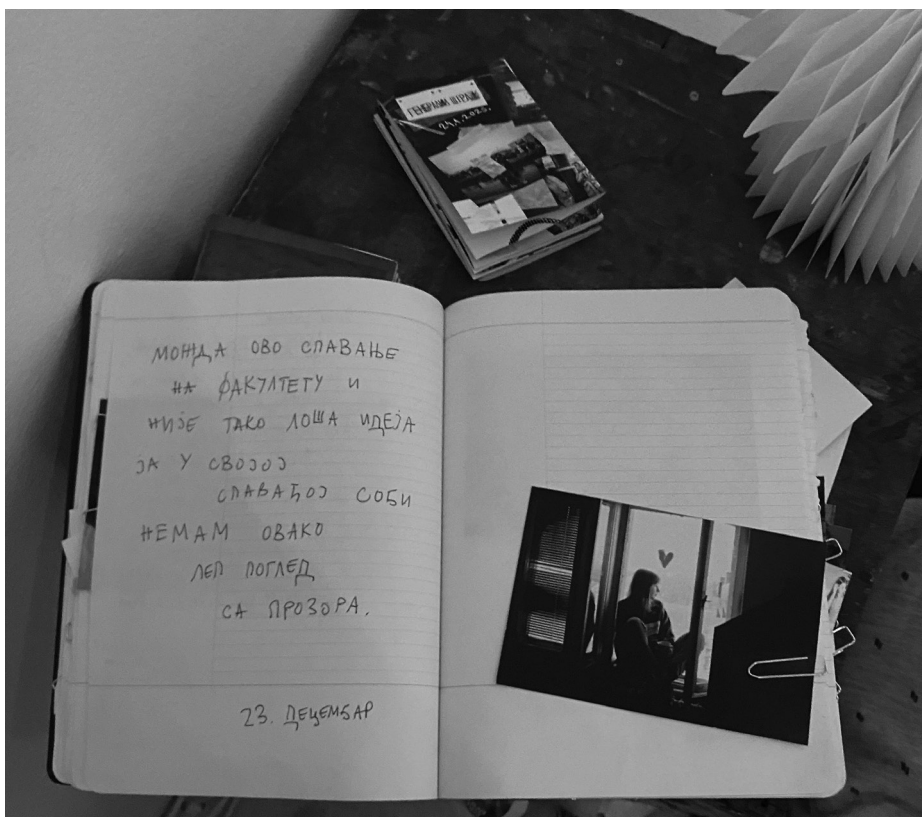 ГЕНЕРАЛНИ ШТРАЈК
24.1.2025.
МОЖДА ОВО СПАВАЊЕ
НА ФАКУЛТЕТУ И
НИЈЕ ТАКО ЛОША ИДЕЈА
ЈА У СВОЈОЈ
СПАВАЋОЈ СОБИ
НЕМАМ ОВАКО
ЛЕП ПОГЛЕД
СА ПРОЗОРА.
23. ДЕЦЕМБАР